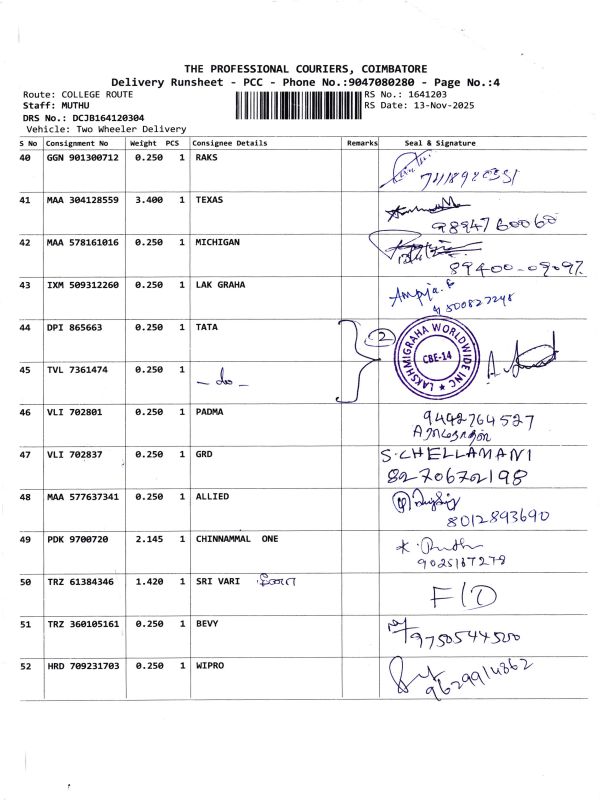 THE PROFESSIONAL COURIERS, COIMBATORE
Delivery Runsheet - PCC - Phone No.:9047080280 - Page No.:4
Route: COLLEGE ROUTE RS No.: 1641203
Staff: MUTHU RS Date: 13-Nov-2025
DRS No.: DCJB164120304
Vehicle: Two Wheeler Delivery
S No Consignment No Weight PCS Consignee Details Remarks Seal & Signature
40 GGN 901300712 0.250 1 RAKS
41 MAA 304128559 3.400 1 TEXAS
9894760060
42 MAA 578161016 0.250 1 MICHIGAN
89400-09097
43 IXM 509312260 0.250 1 LAK GRAHA
44 DPI 865663 0.250 1 TATA 2
LAKSHMIGRAHA WORLDWIDE INC
CBE-14
45 TVL 7361474 0.250 1
- do -
46 VLI 702801 0.250 1 PADMA 9442764527
47 VLI 702837 0.250 1 GRD S.CHELLAMANI
8270672198
48 MAA 577637341 0.250 1 ALLIED
8012893690
49 PDK 9700720 2.145 1 CHINNAMMAL ONE
9025167278
50 TRZ 61384346 1.420 1 SRI VARI F/D
51 TRZ 360105161 0.250 1 BEVY 9750544500
52 HRD 709231703 0.250 1 WIPRO
9629914862